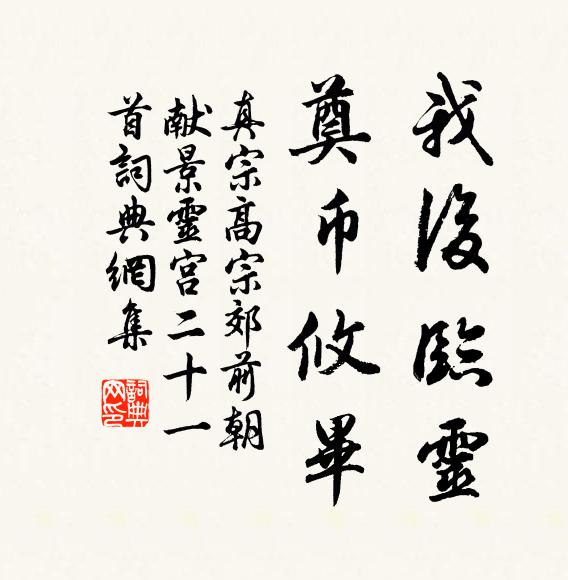 我後臨靈
奠币攸畢
真宗高宗郊前朝
献景靈宫二十一
首詞典網集
詞典网印